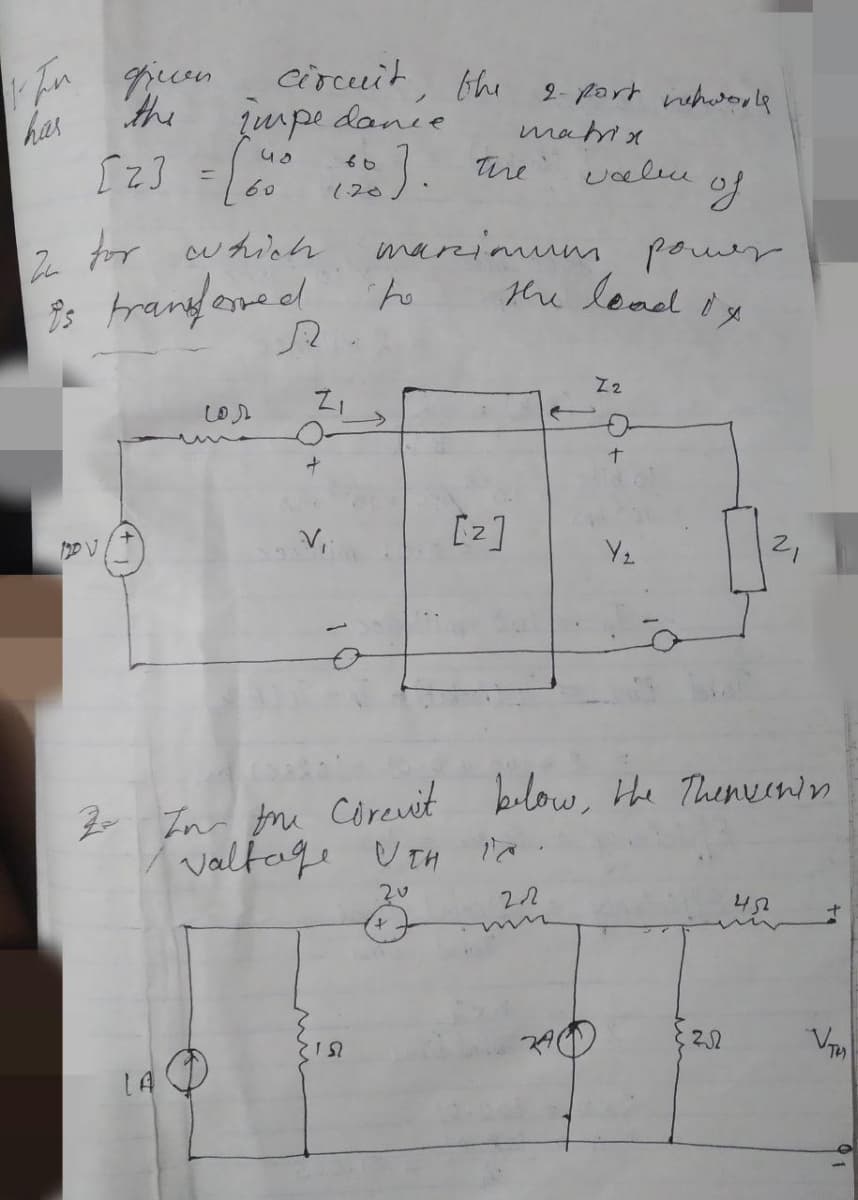 1. In given circuit, the 2-port network
has the impedance matrix
[Z] = [40 60
60 120]. The value of
ZL for which maximum power
is transferred to the load is
___ Ω.
10Ω
Z1
I2
+
+
120 V
+
-
V1
[Z]
V2
Z1
-
-
2- In the Circuit below, the Thenvenin
Valtage UTH is.
2V
2Ω
4Ω
+
+
-
1A
1Ω
2A
2Ω
VTH
-